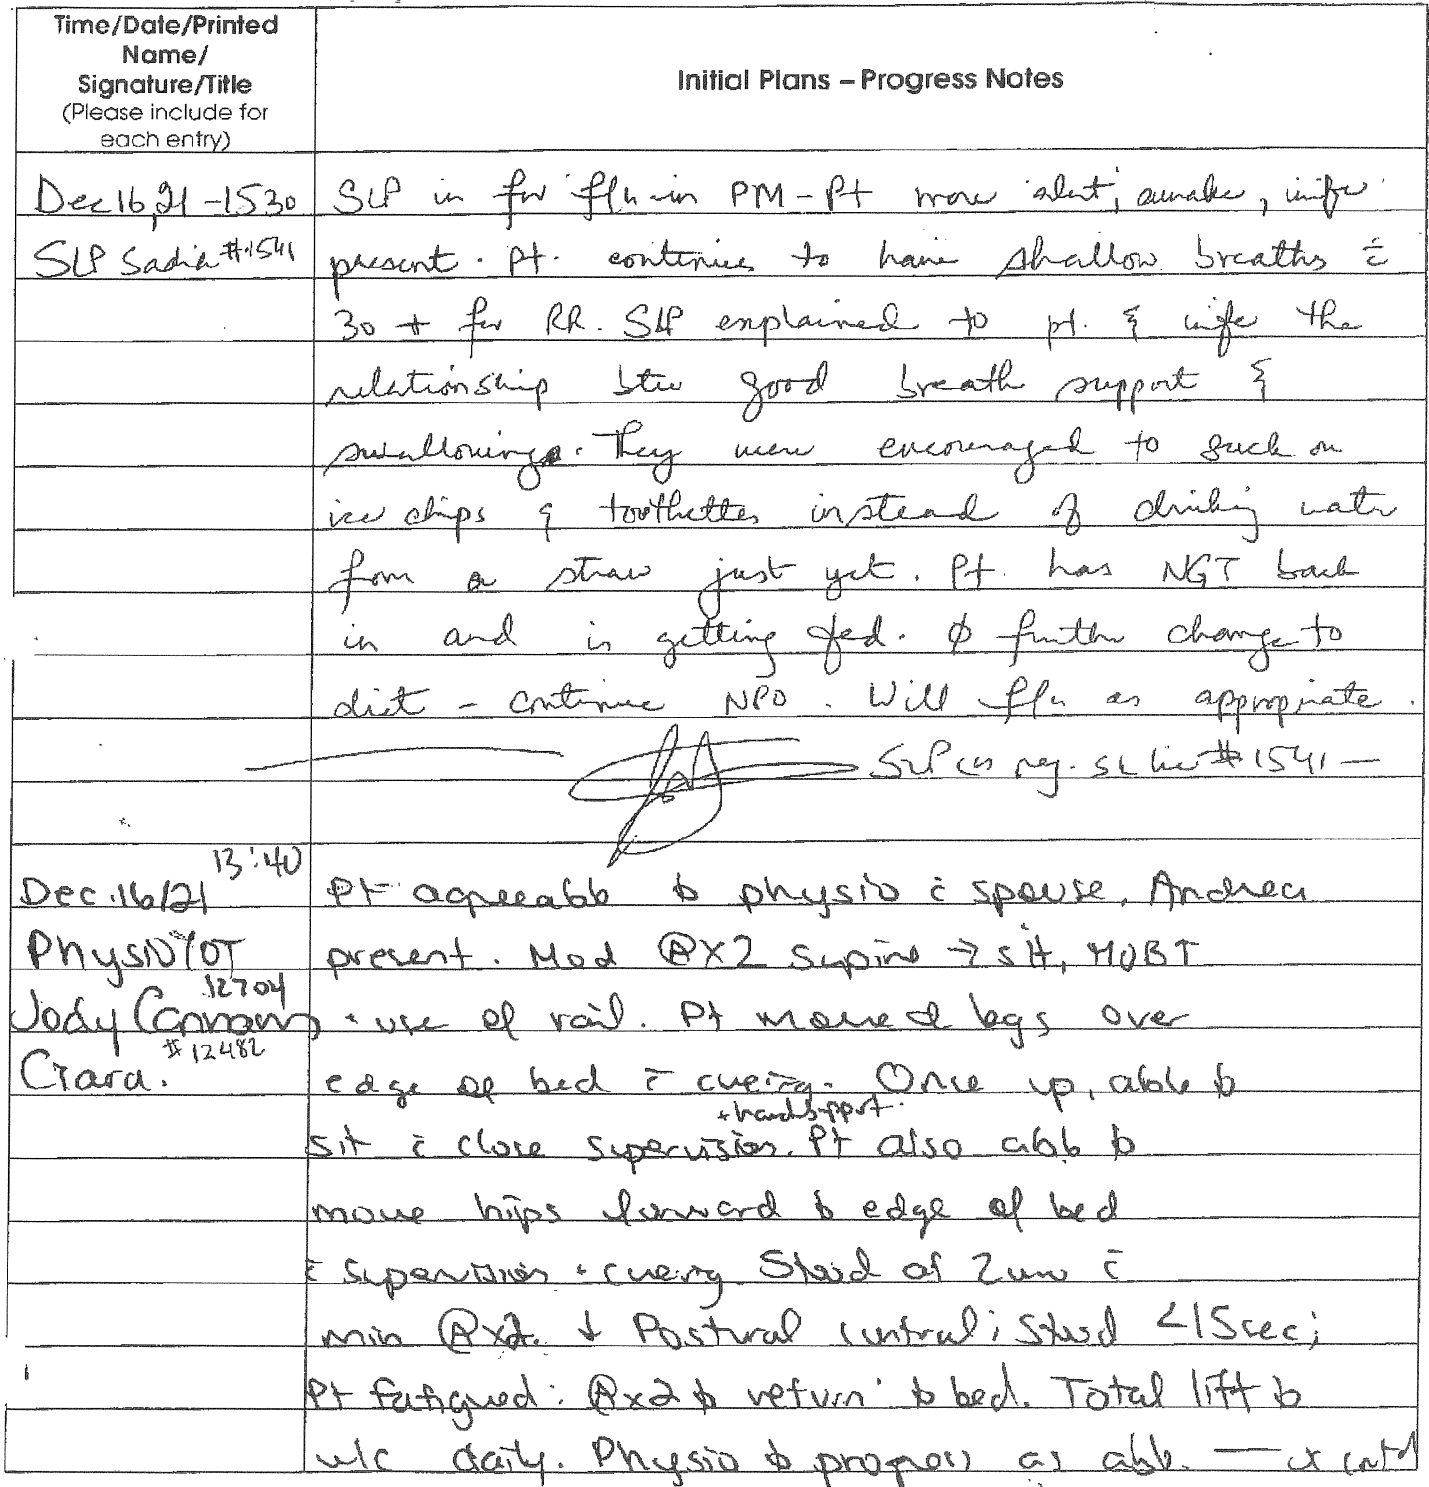 Time/Date/Printed
Name/
Signature/Title
(Please include for
each entry)
Initial Plans – Progress Notes
Dec 16, 21 - 1530
SLP Sadia #1541
SLP in for f/u in PM - Pt more alert, awake, wife
present. Pt. continues to have shallow breaths c̄
30 + for RR. SLP explained to pt. & wife the
relationship btw good breath support &
swallowing. They were encouraged to suck on
ice chips & toothettes instead of drinking water
from a straw just yet. Pt. has NGT back
in and is getting fed. ∅ further change to
diet - continue NPO. Will f/u as appropriate.
SLP reg. #1541 —
13:40
Dec.16/21
Physio/OT
12704
Jody
#12482
Ciara.
Pt agreeable to physio c̄ spouse, Andrea
present. Mod Ⓐx2 supine → sit, HOB↑
+ use of rail. Pt moved legs over
edge of bed c̄ cueing. Once up, able to
+ hand support.
sit c̄ close supervision. Pt also able to
move hips forward to edge of bed
c̄ supervision + cueing. Stood at 2ww c̄
min Ⓐx2. ↓ Postural control; stood <15sec;
Pt fatigued: Ⓐx2 to return to bed. Total lift to
w/c daily. Physio to progress as able. — cont'd